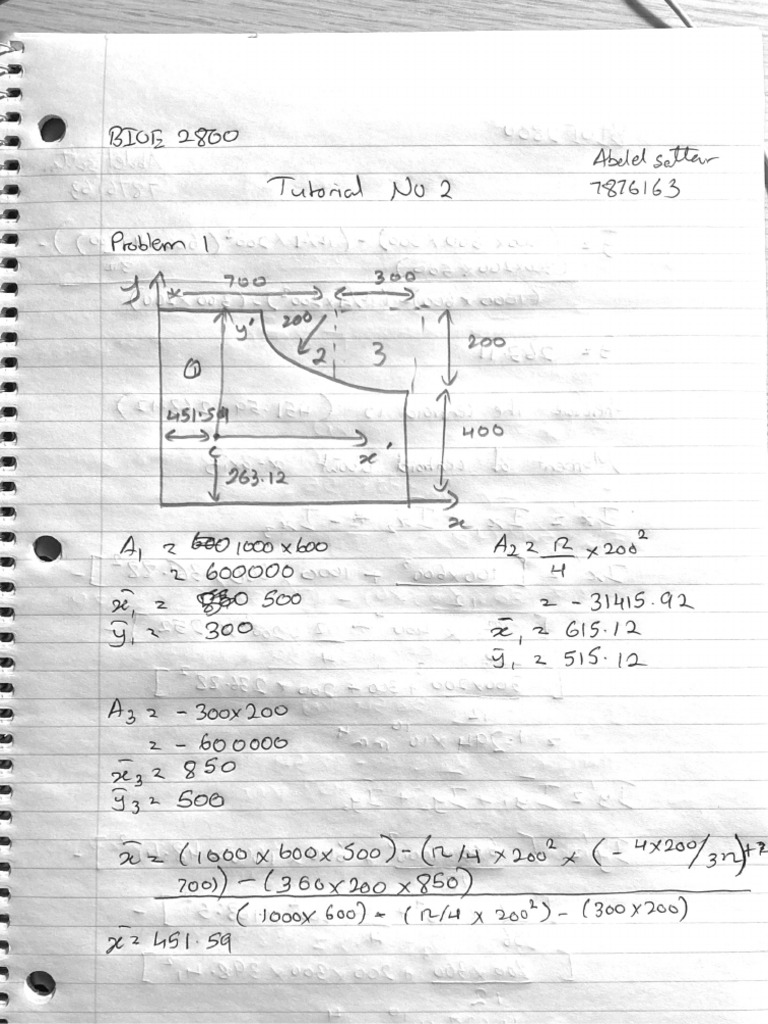 BIOE 2800
Abdel sattar
Tutorial No 2
7876163
Problem 1
700
300
y
y'
200
2
3
200
①
451.59
400
c
x'
263.12
x
A₁ = 1000 x 600
= 600000
x̄₁ = 500
ȳ₁ = 300
A₂ = π/4 x 200²
= - 31415.92
x̄₁ = 615.12
ȳ₁ = 515.12
A₃ = - 300 x 200
= - 600000
x̄₃ = 850
ȳ₃ = 500
x̄ = (1000 x 600 x 500) - (π/4 x 200² x (- 4 x 200/3π) +
700)) - (300 x 200 x 850)
(1000 x 600) - (π/4 x 200²) - (300 x 200)
x̄ = 451.59